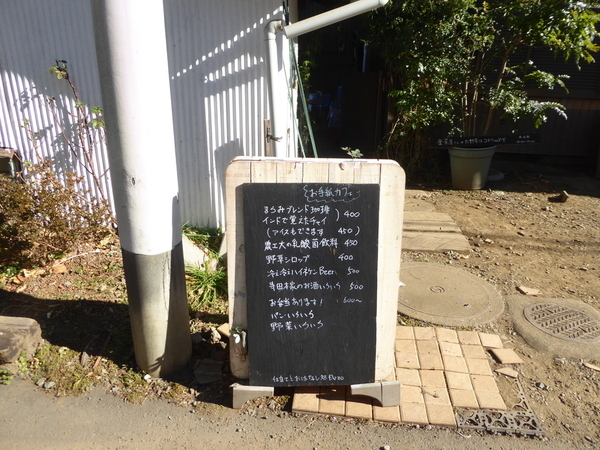 お手紙カフェ
まろみブレンド珈琲
インドで覚えたチャイ ) 400
(アイスもできます 450)
農工大の乳酸菌飲料 450
野草シロップ 400
冷え冷えハイネケンBeer 500
寺田本家のお酒いろいろ 500
お弁当あります! 600〜
パンいろいろ
野菜いろいろ
仕立てとおはなし処